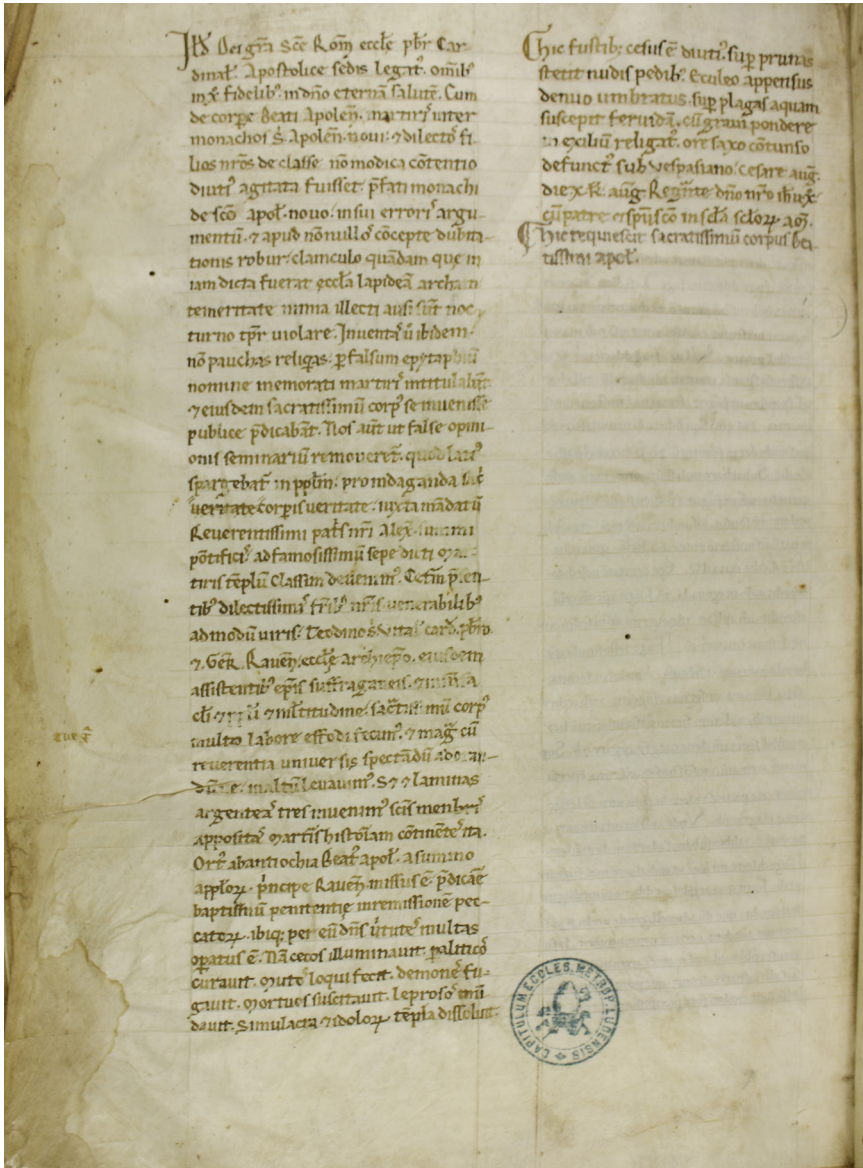 Dei gr̄a Sc̄e Rom̄ eccl̄e pbr̄ Car
dinal̄ Apostolice sedis Legatꝰ. om̄ibꝰ
in x̄ fidelibꝰ in dn̄o eternā salutē. Cum
de corpe Beati Apolen̄. martirꝭ inter
monachos S̄ Apolen̄. noui. ⁊ dilectoꝭ fi
lios nr̄os de classe nō modica cōtentio
diutiꝰ agitata fuisset. p̄fati monachi
de sc̄o apoł. nouo. in sui errorꝭ argu
mentū. ⁊ apud nōnulloꝭ cōcepte dubita
tionis robur. clanculo quādam que in
iam dicta fuerat eccl̄a lapideā archa
temeritate nimia illecti ausi sūt noc
turno tp̄r violare. Inuentaꝭ ū ibidem
nō pauchas reliq̄as. p̄ falsum epytaphiū
nomine memorati martirꝭ intitulabāt
⁊ eiusdem sacratissimū corpꝰ se inuenisse
publice p̄dicabāt. Nos aūt ut false opini
onis seminariū remoueret̄. quod latiꝰ
spargebat̄ in pp̄lm̄. pro indaganda
ueritate corporis ueritate. iuxta mādatū
Reuerentissimi pat̄s nr̄i Alex̄. summi
pōtificꝭ ad famosissimū sepe dicti
tiris tēplū Classim deuenimꝰ. p̄sen
tibꝰ dilectissimꝭ fr̄ibꝰ nr̄is uenerabilibꝰ
admodū uiris. Teodino S Vitał card. pbr̄o
⁊. Ger̄. Rauen̄. eccl̄e archiep̄o. eiusdem
assistentibꝰ ep̄is suffraganeis.
cli multitudine. sāctissimū corpꝰ
multo labore effodi fecimꝰ. ⁊ magā cū
reuerentia uniuersis spectādū
in altū leuauimꝰ. S⁊ ⁊ laminas
argenteaꝭ tres inuenimꝰ scīs menbrꝭ
appositaꝭ martir̄is histoīam cōtinēteꝭ ita.
Ortꝰ ab antiochia Beatꝰ apoł. a summo
appl̄oꝝ. p̄ncipe Rauen̄. missus ē. p̄dicāe
baptismū penitentie in remissionē pec
catoꝝ. ibiq; per eū dn̄s ūtuteꝭ multas
op̄atus ē. Nā cecos illuminauit. paliticoꝭ
curauit. muteꝭ loqui fecit. demoneꝭ fu
gauit. mortuos suscitauit. leprosoꝭ mū
dauit. Simulacra ⁊ idoloꝝ tēpla dissoluit.
Hic fustib; cesus ē diutiꝰ. sup̄ prunas
stetit nudis pedibꝰ. Eculeo appensus
denuo umbratus. sup̄ plagas aquam
suscepit feruidā. cū graui pondere
in exiliū religatꝰ. ore saxo cōtunso
defunctꝰ sub vespasiano. cesare auḡ.
die x. K̄. auḡ. Regnāte dn̄o nr̄o ihu x̄
cū patre ⁊ sp̄u sc̄o in sc̄la sc̄loꝝ. am̄.
Hic requiescit sacratissimū corpus bea
tissimi apoł.
que ē
CAPITULUM ECCLES. METROP. LUCENSIS